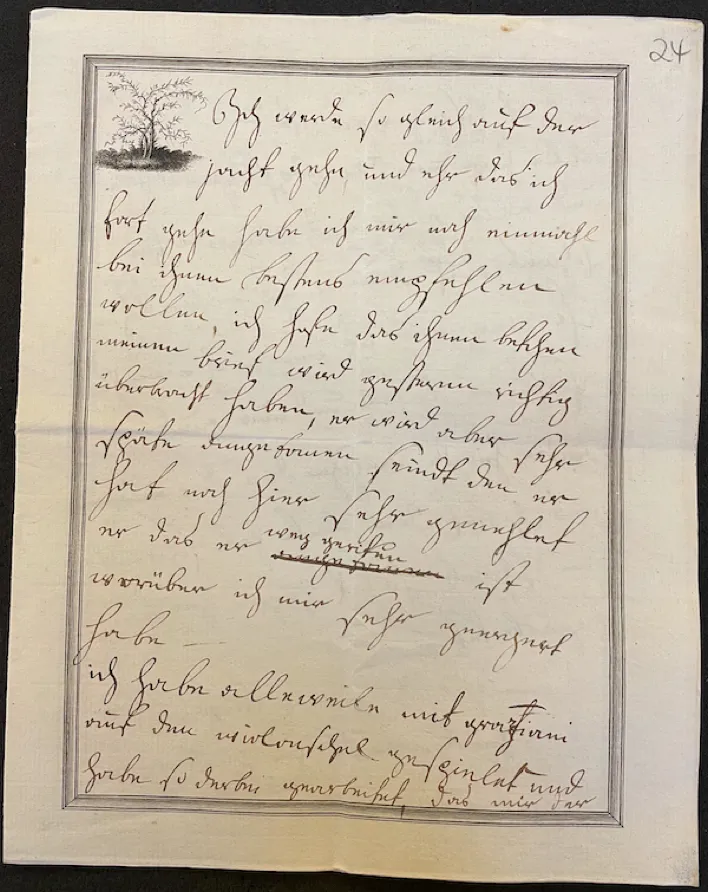 24
Ich werde so gleich auf der
jacht gehn, und ehr das ich
fort gehe habe ich mir noch einmahl
bei ihnen bestens empfehlen
wollen, ich hofe das ihnen
meinen brief wird gestern richtig
überbracht haben, er wird aber sehr
späte angekomen seindt den er
hat noch hier sehr
er das er weg geritten ist
worüber ich mir sehr geergert
habe —
ich habe alleweile mit graziani
auf den violonschel gespielet und
habe so derbei gearbeitet, das mir der